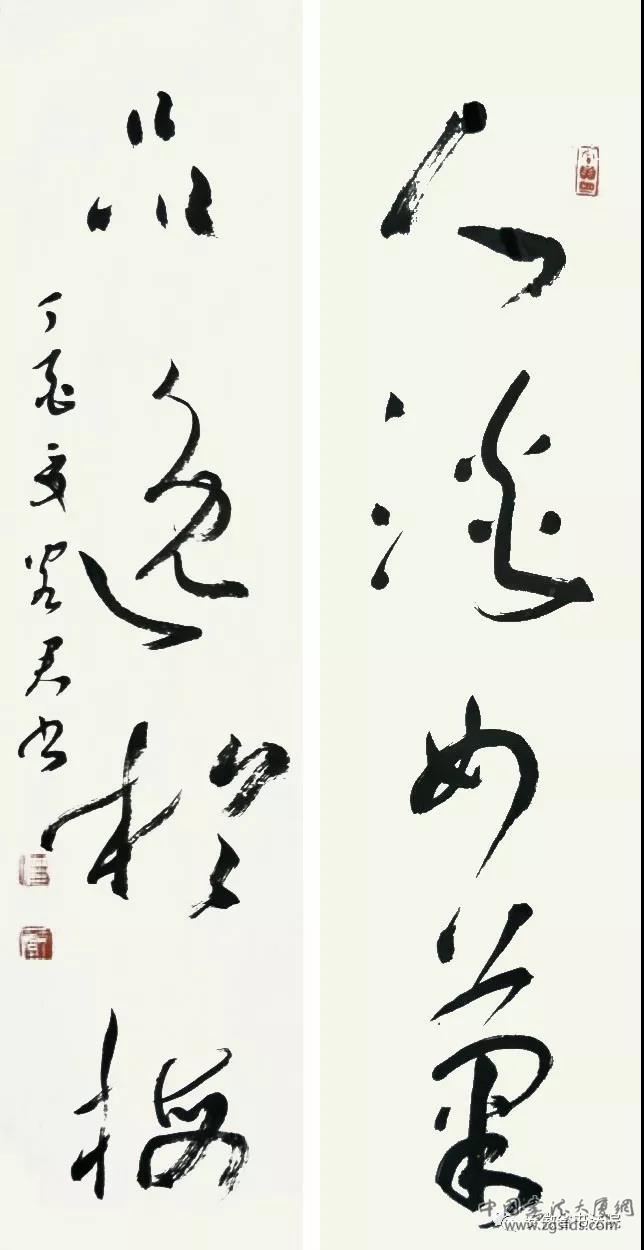 人淡如菊
品逸於梅
丁酉夏君书
中國書法大厦網
www.zgsfds.com